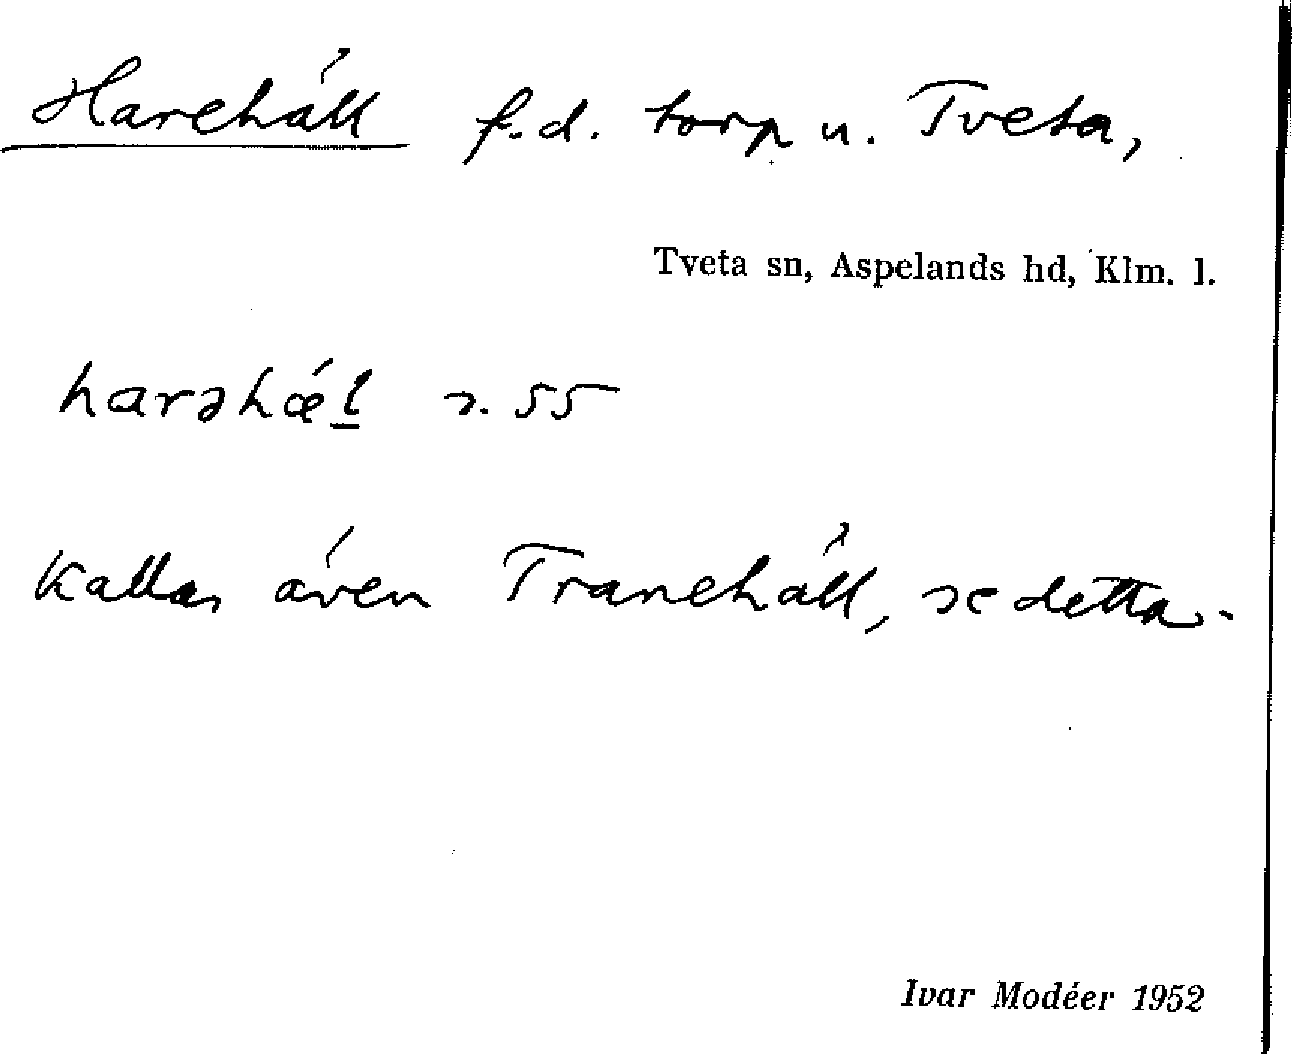 Harehäll f.d. torp u. Tveta,
Tveta sn, Aspelands hd, Klm. l.
harəhǽl s. 55
Kallas även Tranehäll, se detta.
Ivar Modéer 1952